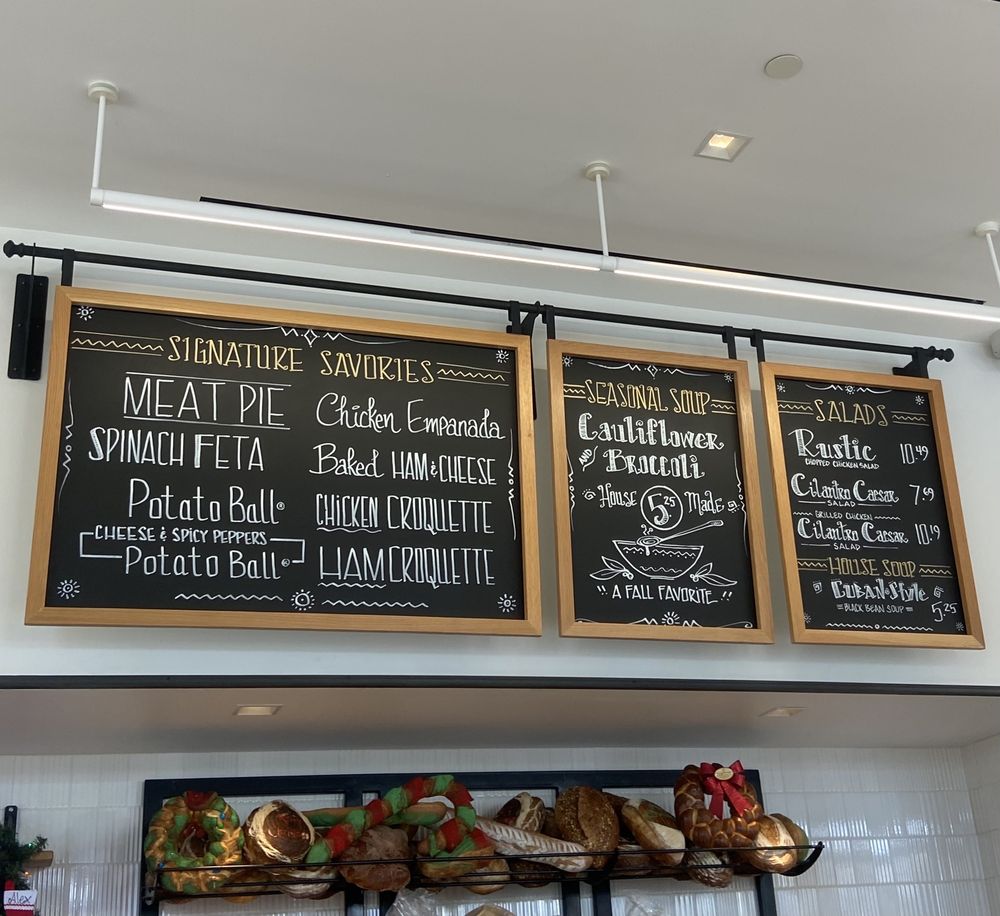 SIGNATURE SAVORIES
MEAT PIE
SPINACH FETA
Potato Ball®
CHEESE & SPICY PEPPERS
Potato Ball®
Chicken Empanada
Baked HAM & CHEESE
CHICKEN CROQUETTE
HAM CROQUETTE
SEASONAL SOUP
Cauliflower
AND Broccoli
House 5.25 Made
"A FALL FAVORITE"
SALADS
Rustic 10.49
CHOPPED CHICKEN SALAD
Cilantro Caesar 7.69
SALAD
GRILLED CHICKEN
Cilantro Caesar 10.19
SALAD
HOUSE SOUP
Cuban-Style
BLACK BEAN SOUP 5.25
Alex